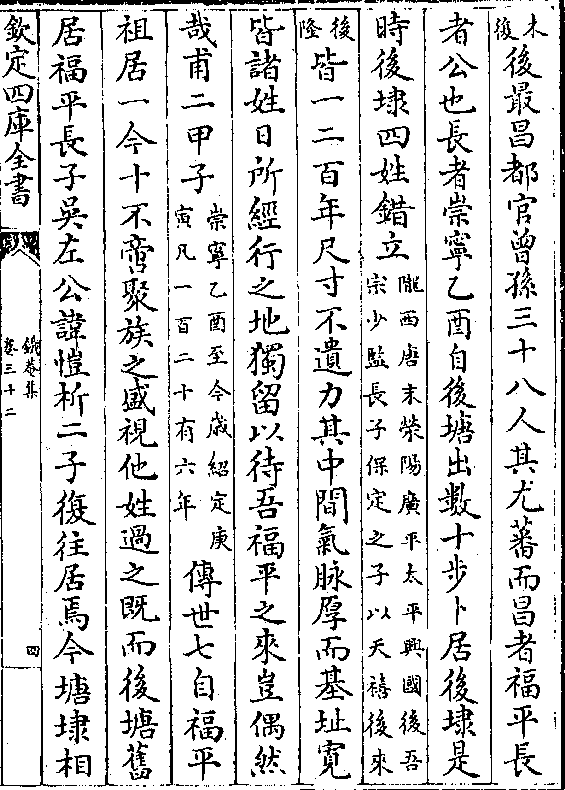 木後後最昌都官曾孫三十八人其尤蕃而昌者福平長
者公也長者崇寧乙酉自後塘出數十步卜居後埭是
時後埭四姓錯立隴西唐末滎陽廣平太平興國後吾宗少監長子保定之子以天禧後來
後隆皆一二百年尺寸不遺力其中間氣脉厚而基址寛
皆諸姓日所經行之地獨留以待吾福平之來豈偶然
哉甫二甲子崇寧乙酉至今嵗紹定庚寅凡一百二十有六年傳世七自福平
祖居一今十不啻聚族之盛視他姓過之既而後塘舊
居福平長子吳左公諱愷析二子復往居焉今塘埭相
欽定四庫全書
卷三十二
四